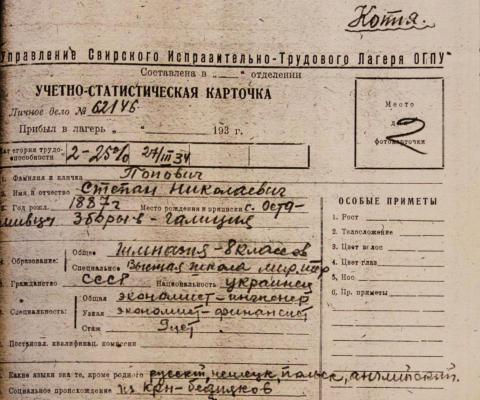 Копия.
Управление Свирского Исправительно-Трудового Лагеря ОГПУ
Составлена в „ “ отделении
УЧЕТНО-СТАТИСТИЧЕСКАЯ КАРТОЧКА
Личное дело № 62146
Прибыл в лагерь „ “ 193 г.
Категория трудо-способности 2-25% 27/III 34
Место
для
фотокарточки
2
1. Фамилия и кличка Попович
2. Имя и отчество Степан Николаевич
3. Год рожд. 1887г Место рождения и приписки с. Оста-
шивцы Зборыв - Галиция
4. Образование: Общее гимназия - 8 классов
Специальное Высшая школа
5. Гражданство СССР Национальность украинец
Специальность: Общая экономист-инженер
Узкая экономист-финансист
Стаж 9 лет
Постановл. квалификац. комиссии
Какие языки знает, кроме родного русский, немецк, польск, английский.
Социальное происхождение из крн-бедняков
ОСОБЫЕ ПРИМЕТЫ
1. Рост
2. Телосложение
3. Цвет волос
4. Цвет глаз
5. Нос
6. Пр. приметы